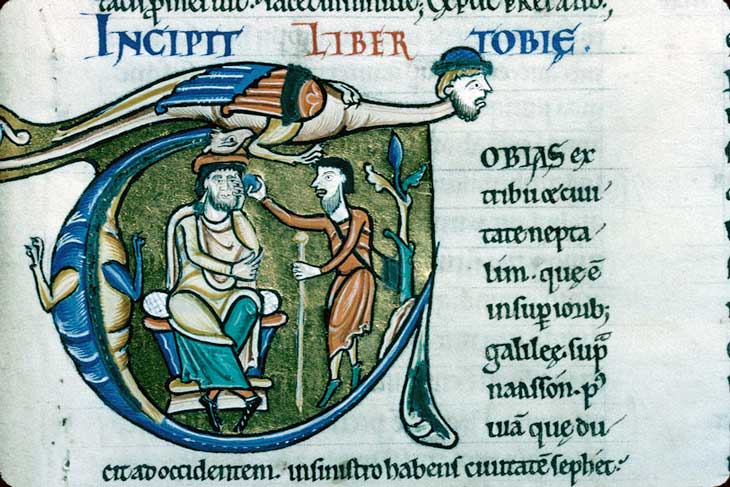 INCIPIT LIBER TOBIĘ.
OBIAS ex
tribu & ciui
tate nepta
lim. quę ē
in supiorib;
galileę. sup̄
naassón. p9
uiā quę du
cit ad occidentem. in sinistro habens ciuitatē sephet.